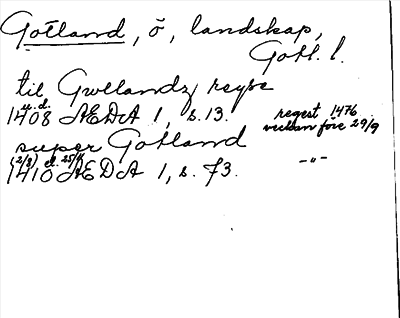 Gotland, ö, landskap,
Gotl. l.
til Gwllandz reyse
u.d.
1408 AEDA 1, s. 13. regest 1476
veckan före 29/9
super Gotland
(2/8) el. 25/11
1410 AEDA 1, s. 73. -"-